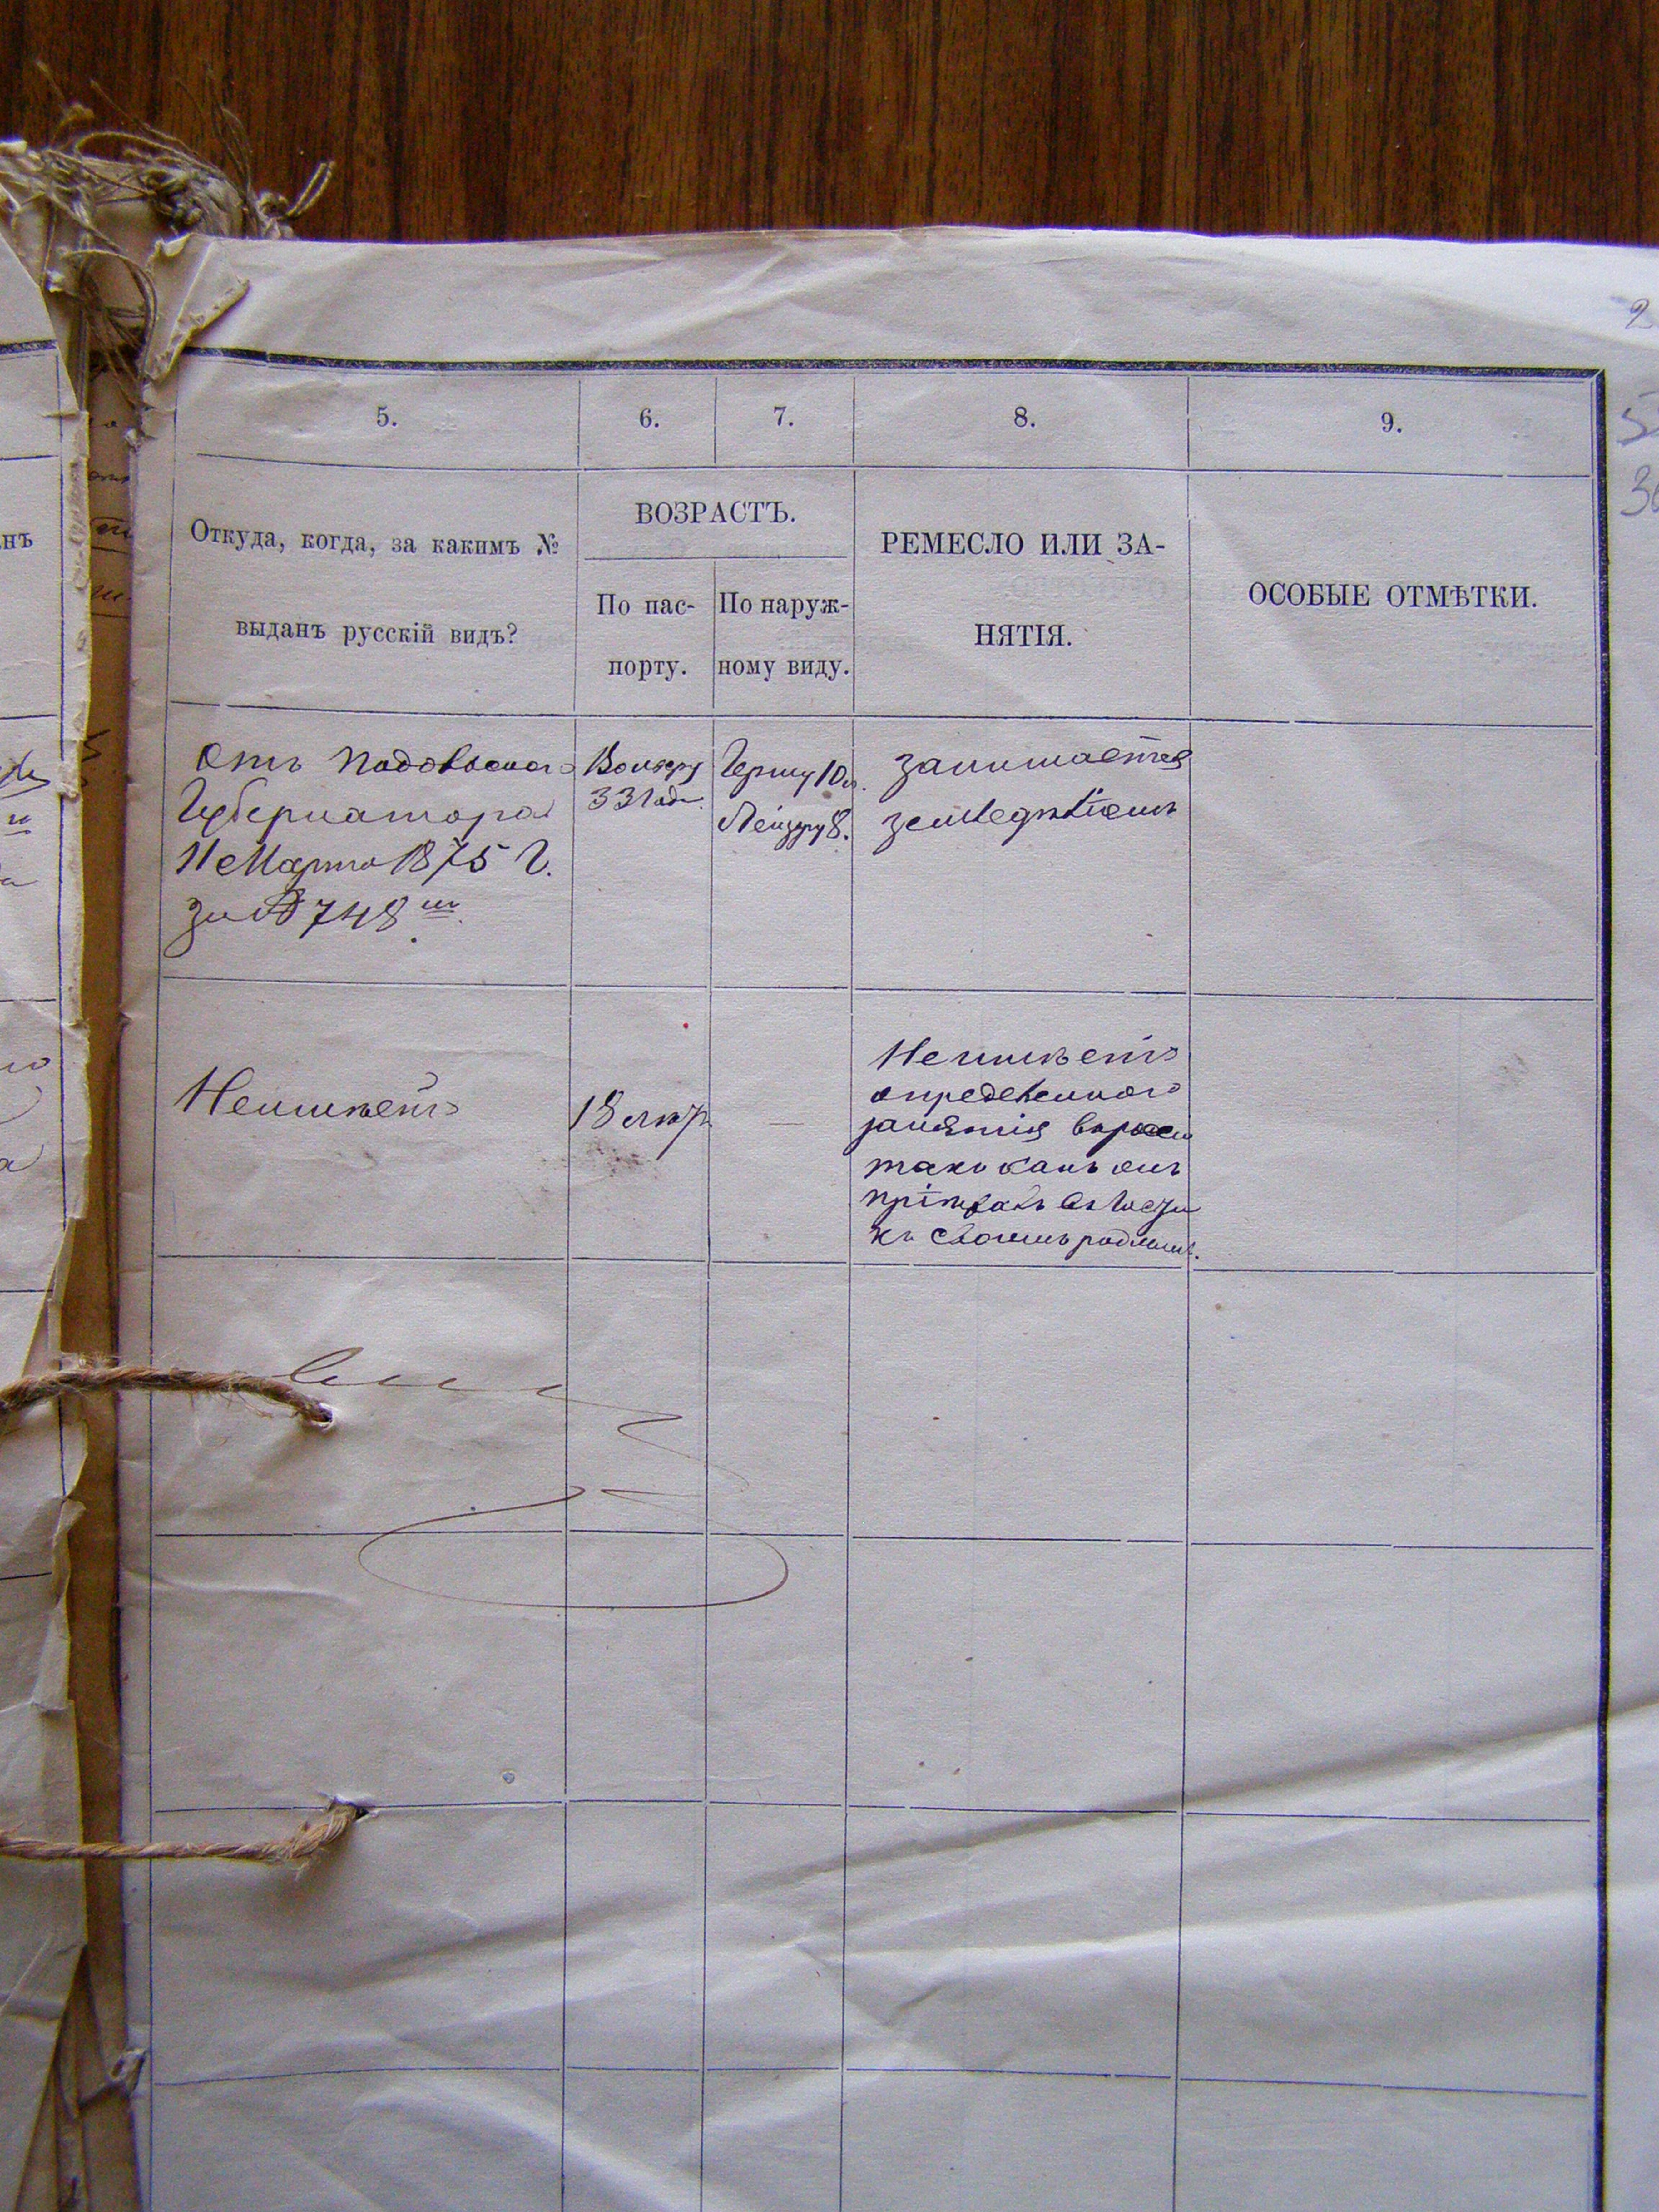 5.
6.
7.
8.
9.
Откуда, когда, за какимъ №
выданъ русскій видъ?
ВОЗРАСТЪ.
По пас-
порту.
По наруж-
ному виду.
РЕМЕСЛО ИЛИ ЗА-
НЯТІЯ.
ОСОБЫЕ ОТМѢТКИ.
Отъ Подольского
Губернатора
11 Марта 1875 г.
за № 748 мъ.
33 года.
Гершу 10 л.
Лейзеру 8.
занимается
земледѣліемъ
Неимѣетъ
18 лѣтъ
—
Неимѣетъ
определенного
занятія
такъ какъ онъ
пріѣхалъ въ гости
къ своимъ роднымъ.